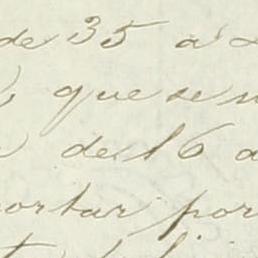 de 35 a
que se
de 16 a
ortar por